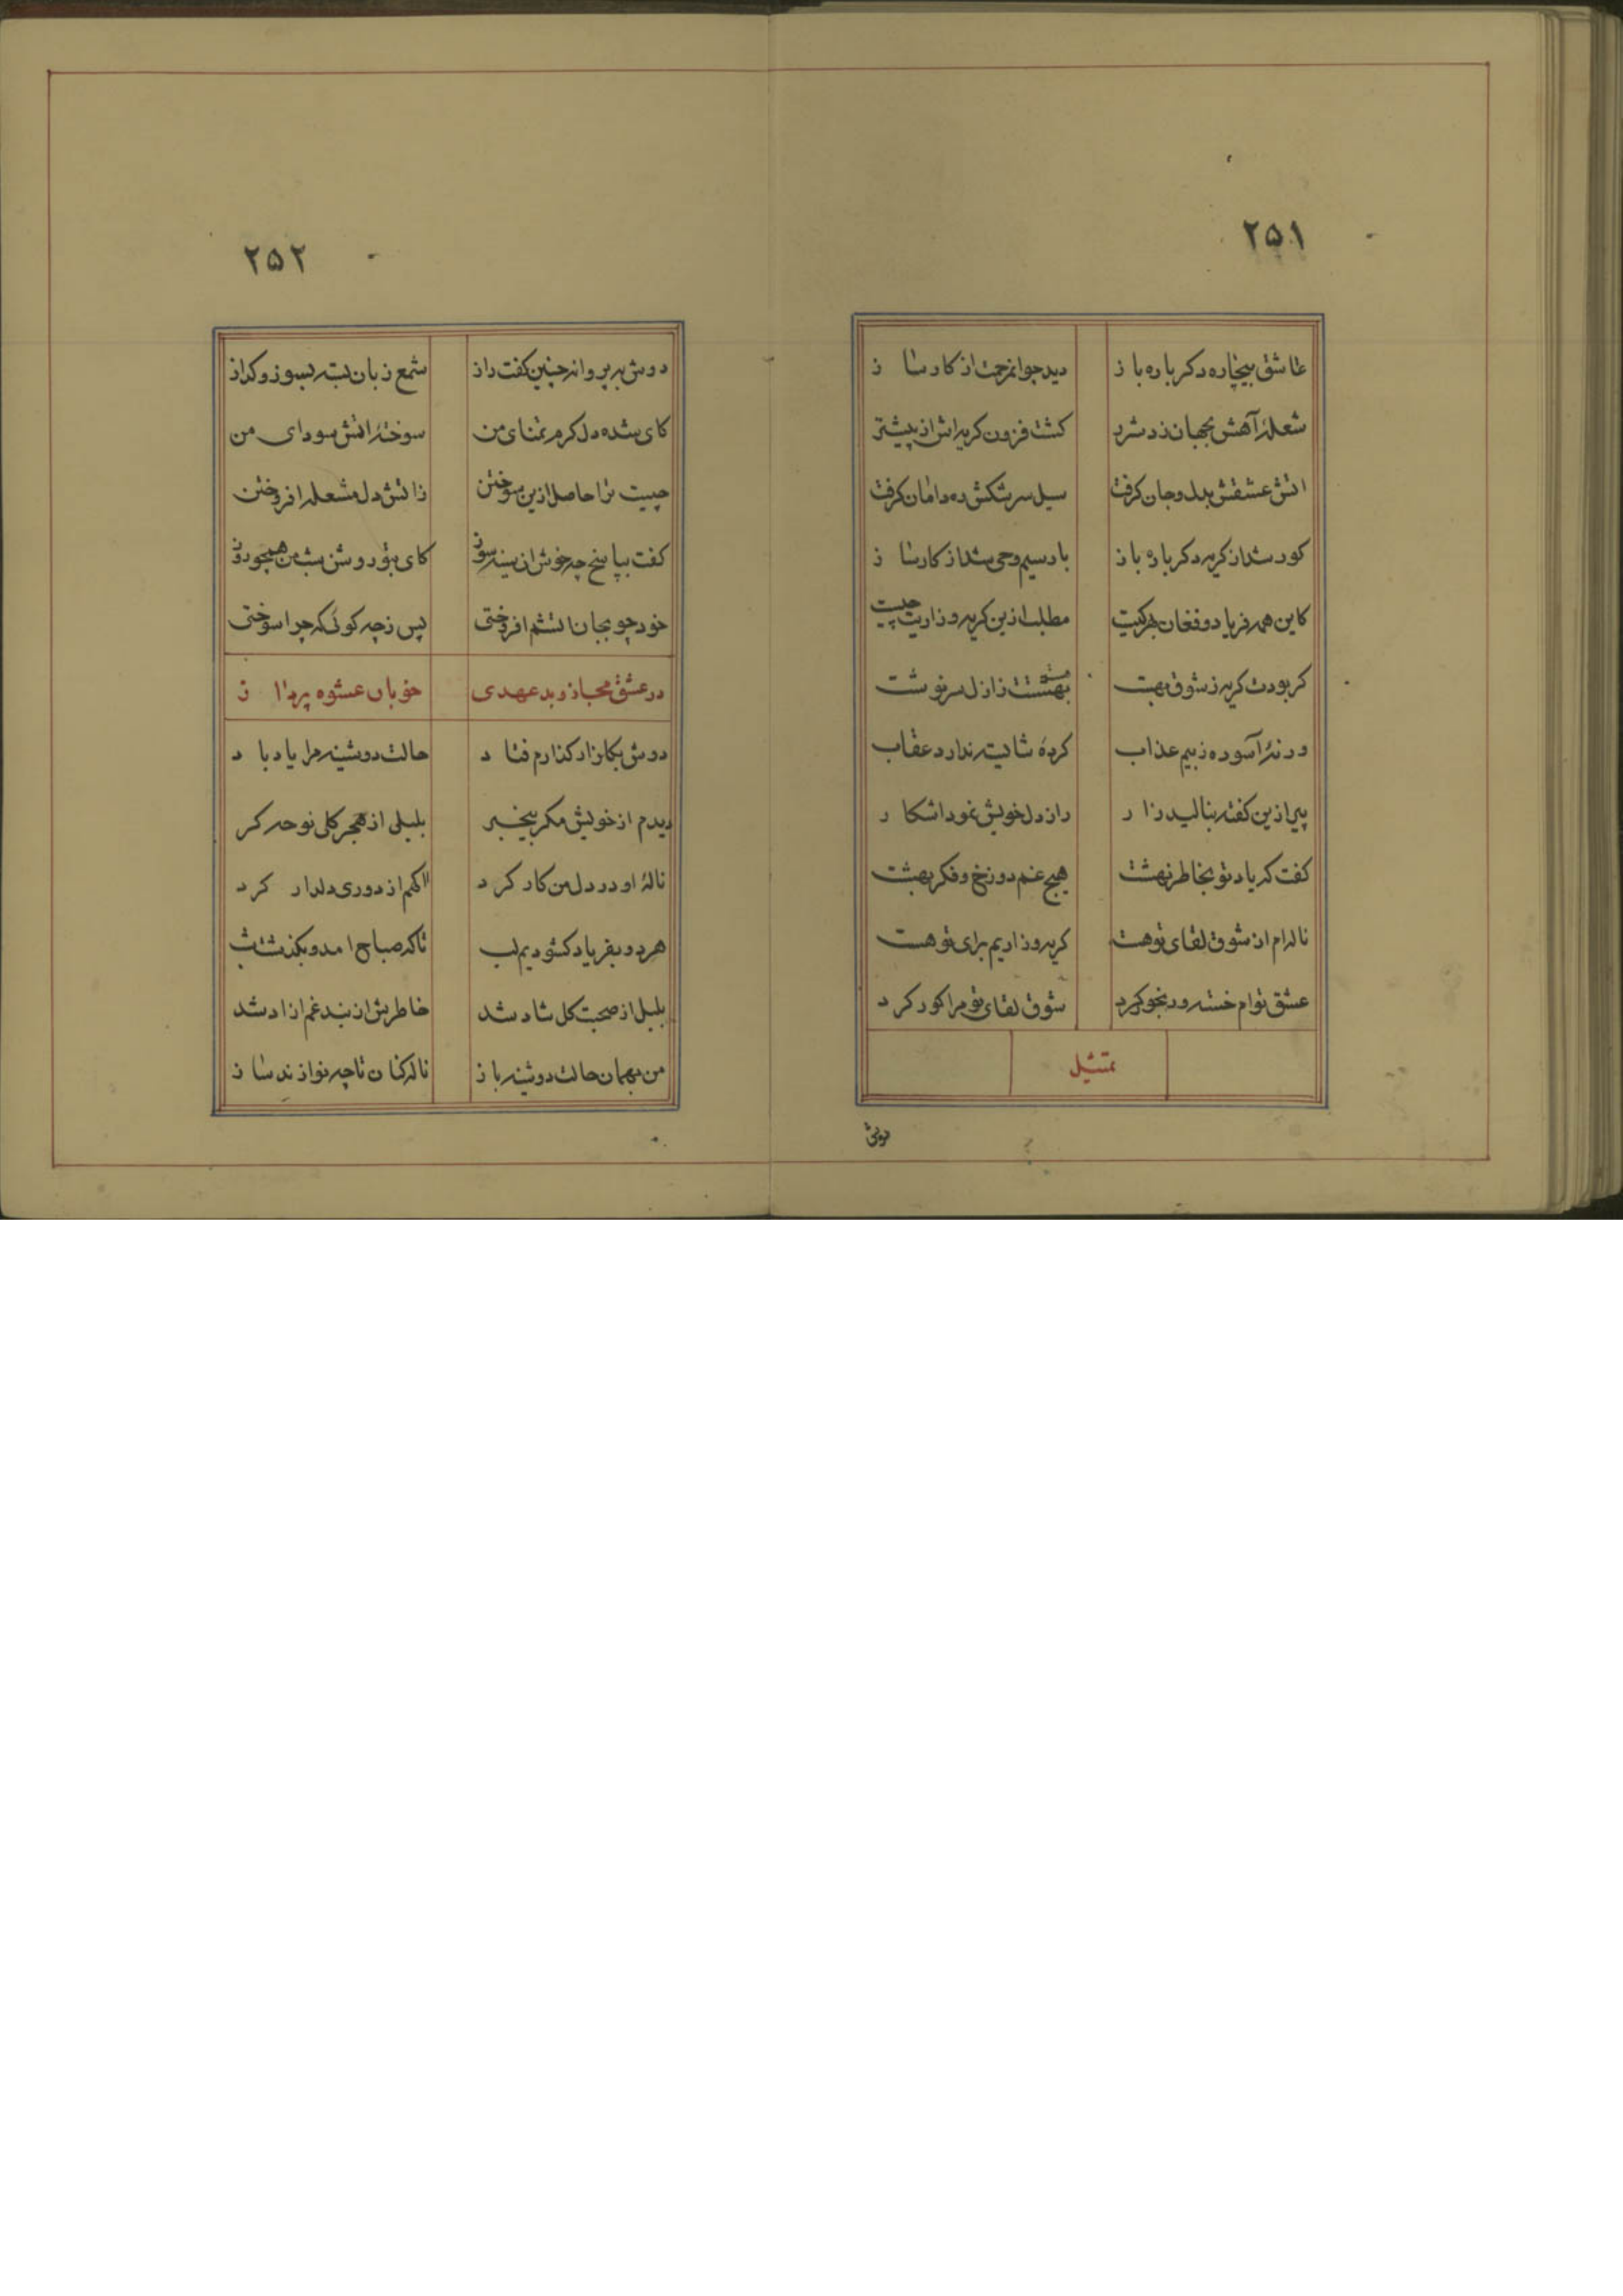 ۲۵۱
عاشق بیچاره دکر باره باز دید چو انمرحمت از کارساز
شعلهٔ آهش بجهان زد شرر کشت فزون کریه‌اش از پیشتر
اتش عشقش بدل و جان کرفت سیل سرشکش ره دامان کرفت
کور شد از کریه دکر باره باز باد سیم وحی شد از کارساز
کاین همه فریاد و فغان بهر کیست مطلب ازین کریه و زاریت چیست
کر بودت کریه ز شوق بهشت بهشتت ز ازل سرنوشت
ور نهٔ آسوده ز بیم عذاب کردهٔ شایسته ندارد عقاب
پیر ازین کفته بنالید زار راز دل خویش نمود اشکار
کفت که یاد تو بخاطر نهشت هیچ غم دوزخ و فکر بهشت
ناله‌ام از شوق لقای تو هست کریه و زاریم برای تو هست
عشق توام خسته و رنجور کرد شوق لقای تو مرا کور کرد
تمثیل
دوش
۲۵۲
دوش به پروانه چنین کفت راز شمع زبان بسته بسوز و کداز
کای شده دل کرم تمنای من سوختهٔ اتش سودای من
چیست ترا حاصل ازین سوختن ز اتش دل مشعله افروختن
کفت بپاسخ چه خوش ان سینه سوز کای بتو روشن شب من همچو روز
خود چو بجان اتشم افروختی پس ز چه کوئی که چرا سوختی
در عشق مجاز و بد عهدی خوبان عشوه پرداز
دوش بکلزار کذارم فتاد حالت دوشینه مرا یاد باد
دیدم از خویش مکر بیخبر بلبلی از هجر کلی نوحه کر
نالهٔ او در دل من کار کرد اکهم از دوری دلدار کرد
هر دو بفریاد کشودیم لب تا که صباح امد و بکذشت شب
بلبل از صحبت کل شاد شد خاطرش از بند غم ازاد شد
من بهمان حالت دوشینه باز ناله کنان تا چه نوازند ساز